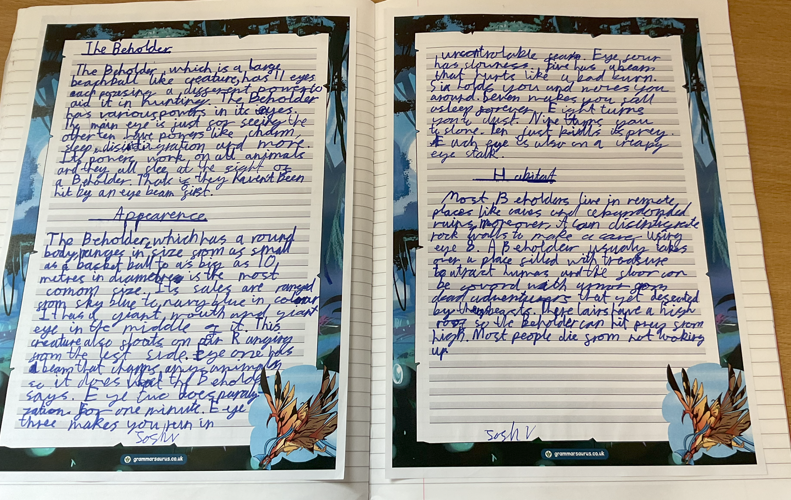 The Beholder
The Beholder, which is a large
beachball like creature, has 11 eyes
each possesing a different power to
aid it in hunting. The Beholder
has various powers in its eyes.
Its main eye is just for seeing the
other ten have powers like charm,
sleep, disintigration and more.
Its powers work on all animals
and they all flee at the sight of
a Beholder. That is they haven't been
hit by an eye beam first.
Appearence
The Beholder, which has a round
body, ranges in size from as small
as a basket ball to as big as 10
metres in diametre is the most
comom size. Its scales are ranged
from sky blue to navy blue in colour
It has a giant mouth and giant
eye in the middle of it. This
creature also floats on air Ranging
from the left side. Eye one has
a beam that charms any animals
so it does what the Beholder
says. Eye two does paraly-
zation for one minute. Eye
three makes you run in
Josh V
grammarsaurus.co.uk
uncontrolable fear. Eye four
has slowness. Five has a beam
that hurts like a bad burn.
Six holds you and moves you
around. Seven makes you fall
asleep forever. Eight turns
you to dust. Nine turns you
to stone. Ten just kills its prey.
Each eye is also on a creapy
eye stalk.
Habitat
Most Beholders live in remote
places like caves and abandonded
ruins, moreover it can disintigrate
rock walls to make a using
eye 8. A Beholder usually takes
over a place filled with treasure
to atract humas and the floor can
be coverd with armor from
dead adventurers that got defeated
by the beasts. There lairs have a high
roof so the beholder can hit prey from
high. Most people die from not looking
up
Josh V
grammarsaurus.co.uk